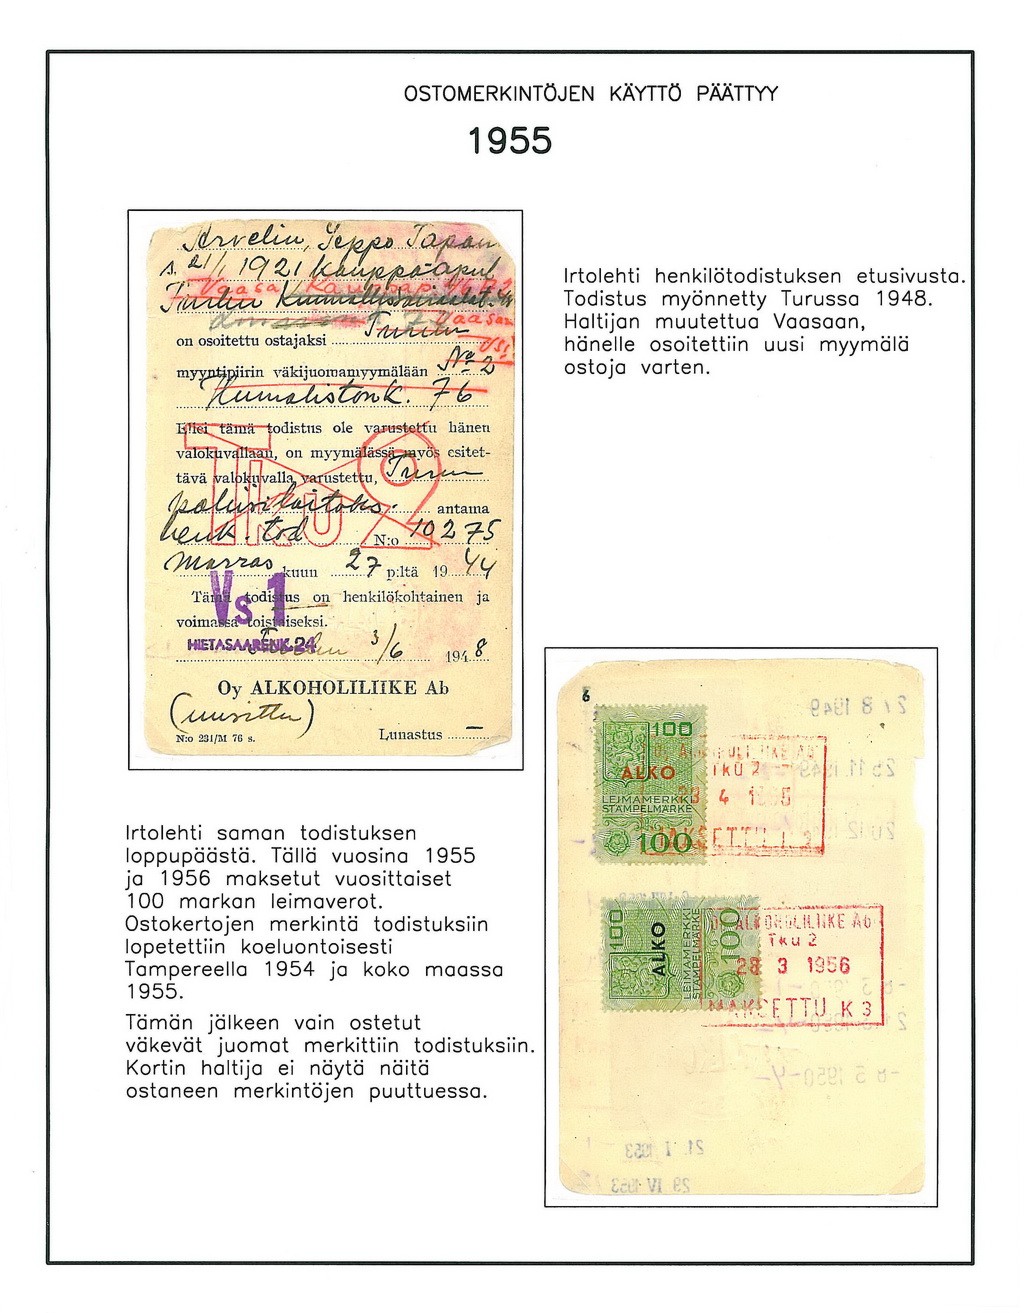 OSTOMERKINTÖJEN KÄYTTÖ PÄÄTTYY
1955
Arvelin, Seppo Tapan
s. 21/1 1921 kauppa-apul
Vaasa
Turun
on osoitettu ostajaksi Turun
myyntipiirin väkijuomamyymälään No 2
Humalistonk. 76
Ellei tämä todistus ole varustettu hänen
valokuvallaan, on myymälässä myös esitet-
tävä valokuvalla varustettu, Turun
poliisilaitoks. antama
henk. tod N:o 10275
Marras kuun 27 p:ltä 1944
Tämä todistus on henkilökohtainen ja
voimassa toistaiseksi.
Tku 2
Vs 1
HIETASAARENK.24
3/6 1948
Oy ALKOHOLILIIKE Ab
N:o 231/M 76 s. Lunastus —
Irtolehti henkilötodistuksen etusivusta.
Todistus myönnetty Turussa 1948.
Haltijan muutettua Vaasaan,
hänelle osoitettiin uusi myymälä
ostoja varten.
Irtolehti saman todistuksen
loppupäästä. Tällä vuosina 1955
ja 1956 maksetut vuosittaiset
100 markan leimaverot.
Ostokertojen merkintä todistuksiin
lopetettiin koeluontoisesti
Tampereella 1954 ja koko maassa
1955.
Tämän jälkeen vain ostetut
väkevät juomat merkittiin todistuksiin.
Kortin haltija ei näytä näitä
ostaneen merkintöjen puuttuessa.
6
2/8 1949
100
ALKO
LEIMAMERKKI
STÄMPELMÄRKE
100
TKU 2
100
ALKO
LEIMAMERKKI
STÄMPELMÄRKE
100
OY ALKOHOLILIIKE Ab
Tku 2
28 3 1956
MAKSETTU K 3
21. I 1953
29. IV 1953